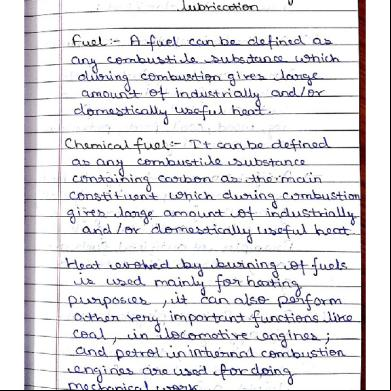 lubrication
Fuel :- A fuel can be defined as
any combustile substance which
during combustion gives large
amount of industrially and/or
domestically useful heat.
Chemical fuel:- It can be defined
as any combustile substance
containing carbon as the main
constituent which during combustion
gives large amount of industrially
and/or domestically useful heat.
Heat evolved by burning of fuels
is used mainly for heating
purposies, it can also perform
other very important functions like
coal, in locomotive engines;
and petrol in internal combustion
engines are used for doing
mechanical work.